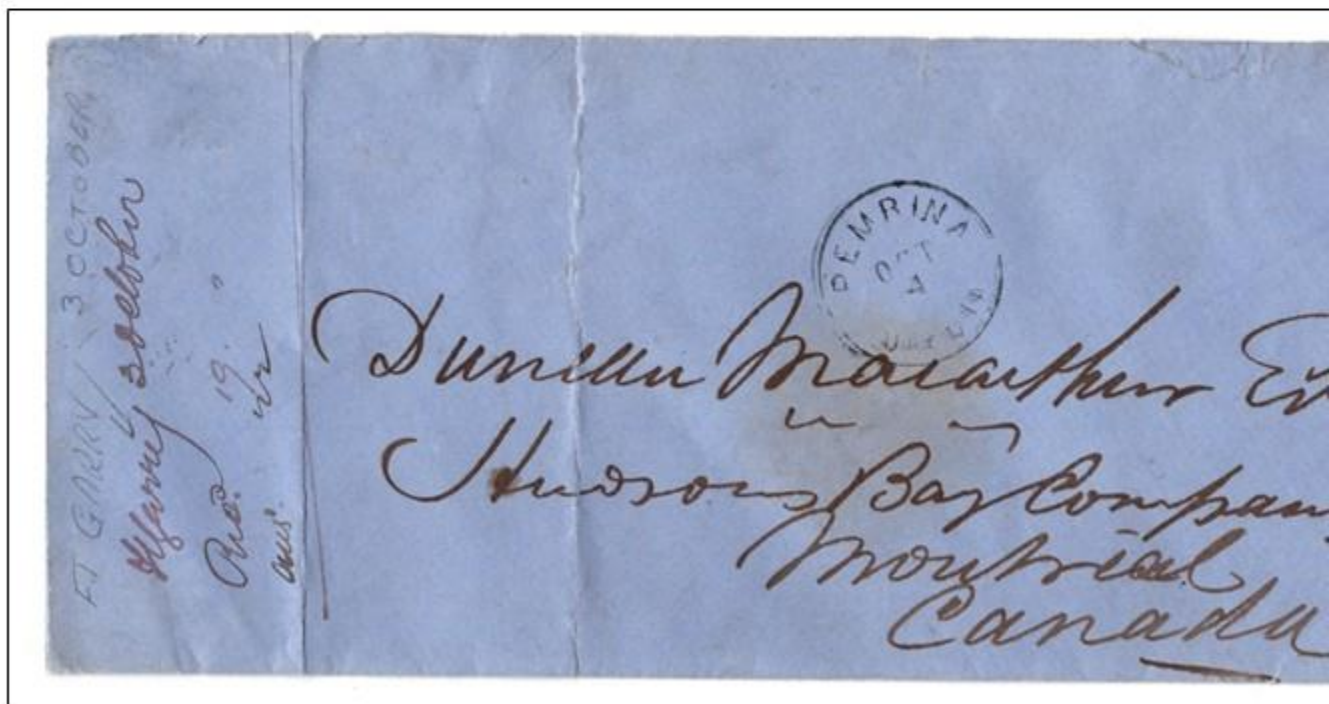 FT GARRY / 3 OCTOBER
Ft Garry 3 October
Rec. 19 "
ans.
PEMBINA
OCT
4
Duncan Macarthur
Hudsons Bay Compan
Montreal
Canada